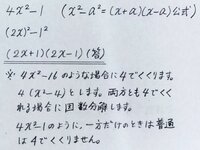 4x²-1 (x²-a²=(x+a)(x-a)公式)
(2x)²-1²
(2x+1)(2x-1)(答)
※ 4x²-16のような場合に4でくくります。
4(x²-4)とします。両方とも4でくく
れる場合に因数分解します。
4x²-1のように、一方だけのときは普通
は4でくくりません。